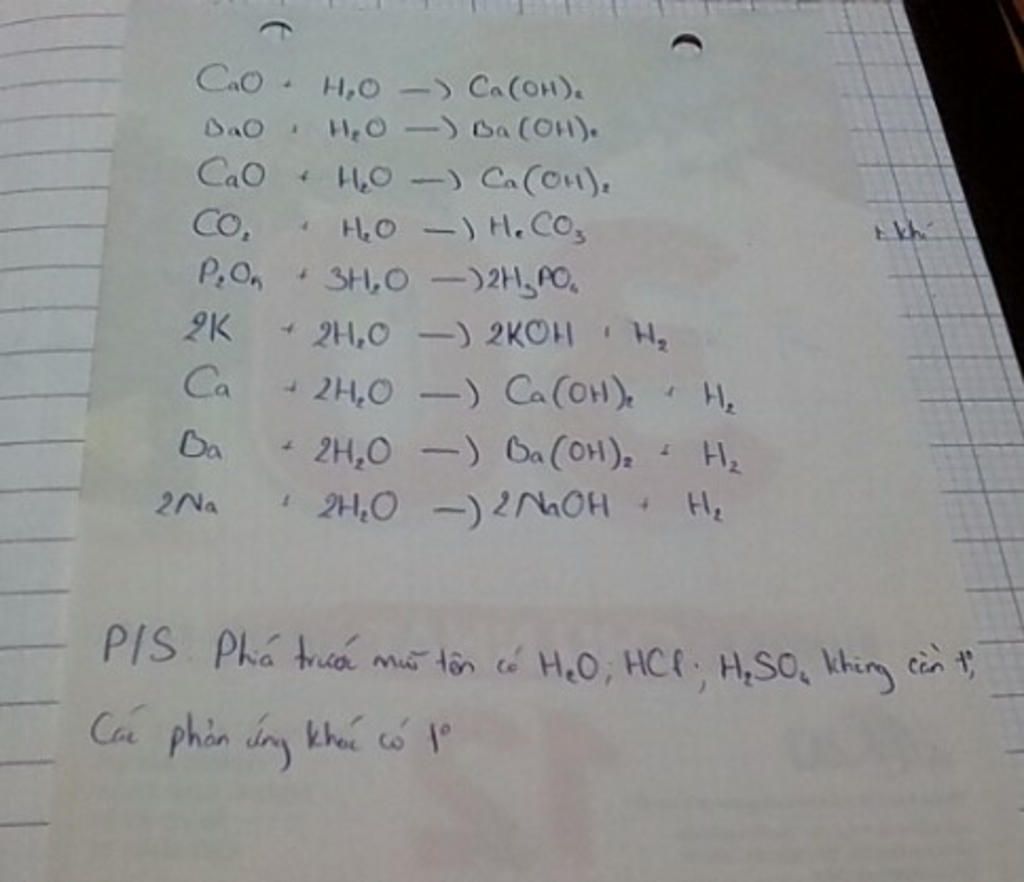 CaO + H₂O —> Ca(OH)₂
BaO + H₂O —> Ba(OH)₂
CaO + H₂O —> Ca(OH)₂
CO₂ + H₂O —> H₂CO₃
P₂O₅ + 3H₂O —> 2H₃PO₄
2K + 2H₂O —> 2KOH + H₂
Ca + 2H₂O —> Ca(OH)₂ + H₂
Ba + 2H₂O —> Ba(OH)₂ + H₂
2Na + 2H₂O —> 2NaOH + H₂
khí
P/S. Phiá trước mũi tên có H₂O; HCl; H₂SO₄ không cần t°,
Các phản ứng khác có t°
12